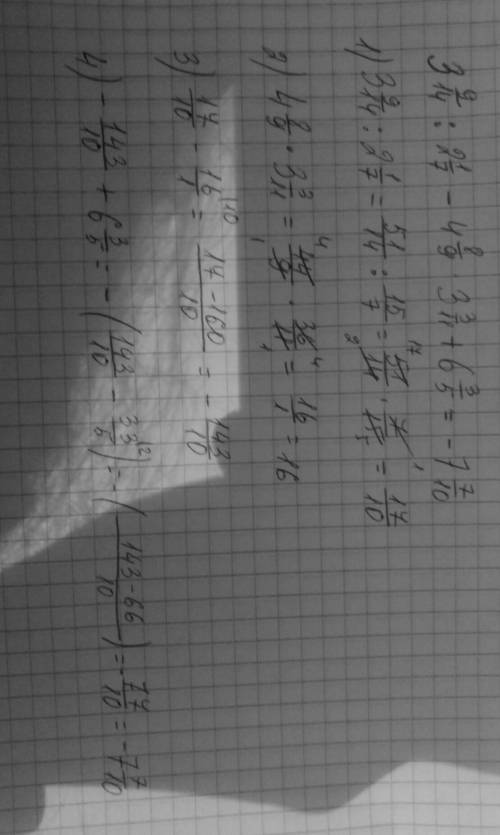 3 9/14 : 2 1/7 - 4 8/9 · 3 3/11 + 6 3/5 = -7 7/10
1) 3 9/14 : 2 1/7 = 51/14 : 15/7 = 51/14 · 7/15 = 17/10
2) 4 8/9 · 3 3/11 = 44/9 · 36/11 = 16/1 = 16
3) 17/10 - 16/1 = 17-160/10 = -143/10
4) -143/10 + 6 3/5 = -(143/10 - 33/5) = -(143-66/10) = -77/10 = -7 7/10